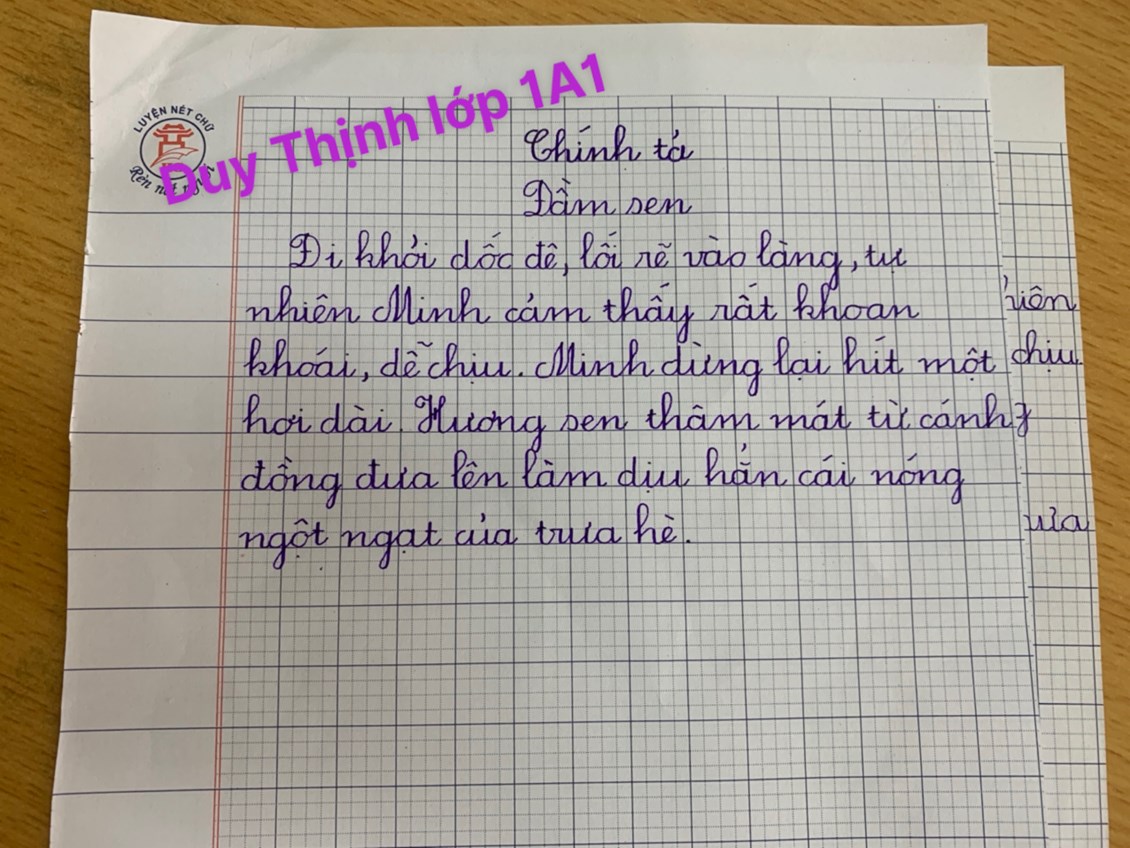 LUYỆN NÉT CHỮ
Duy Thịnh lớp 1A1
Chính tả
Đầm sen
Đi khỏi dốc đê, lối rẽ vào làng, tự
nhiên Minh cảm thấy rất khoan
khoái, dễ chịu. Minh dừng lại hít một
hơi dài. Hương sen thơm mát từ cánh
đồng đưa lên làm dịu hẳn cái nóng
ngột ngạt của trưa hè.
chịu.